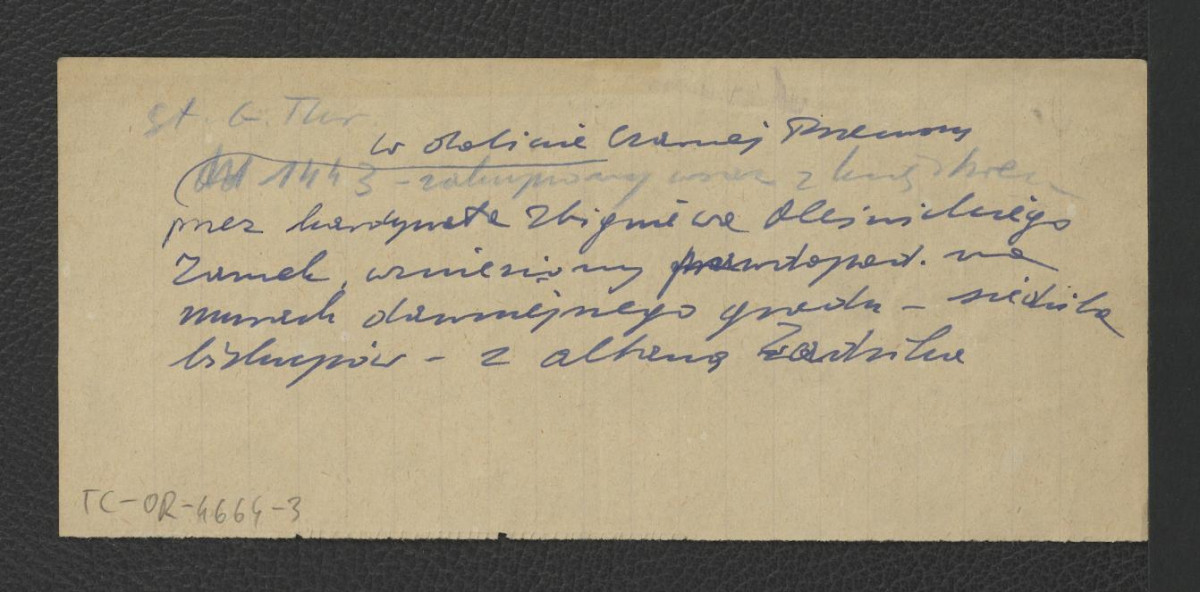 st. G.
w dolinie Czarnej Przemszy
1443 - zakupiony wraz z
przez kardynała Zbigniewa Oleśnickiego
Zamek, wzniesiony prawdopod. na
murach dawniejszego grodu - siedziba
biskupów - z altaną Zadzika
TC-OR-4664-3